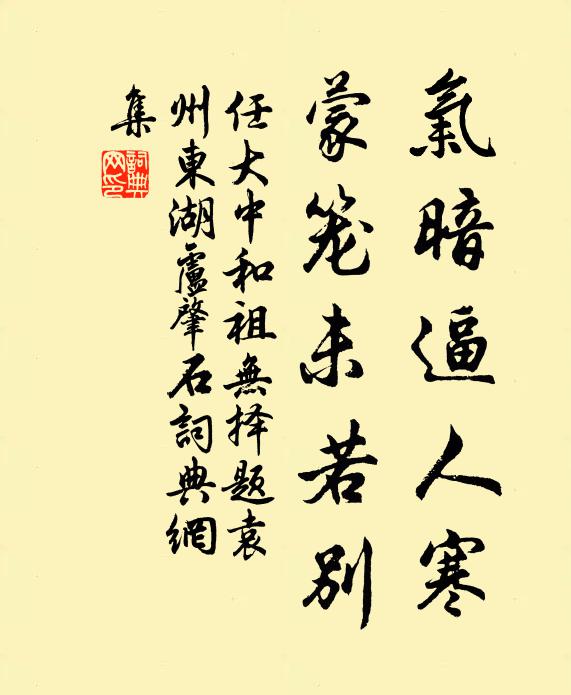 氣暗逼人寒
蒙笼未若别
任大中和祖無择题袁
州東湖盧肇石詞典網
集
詞典网印